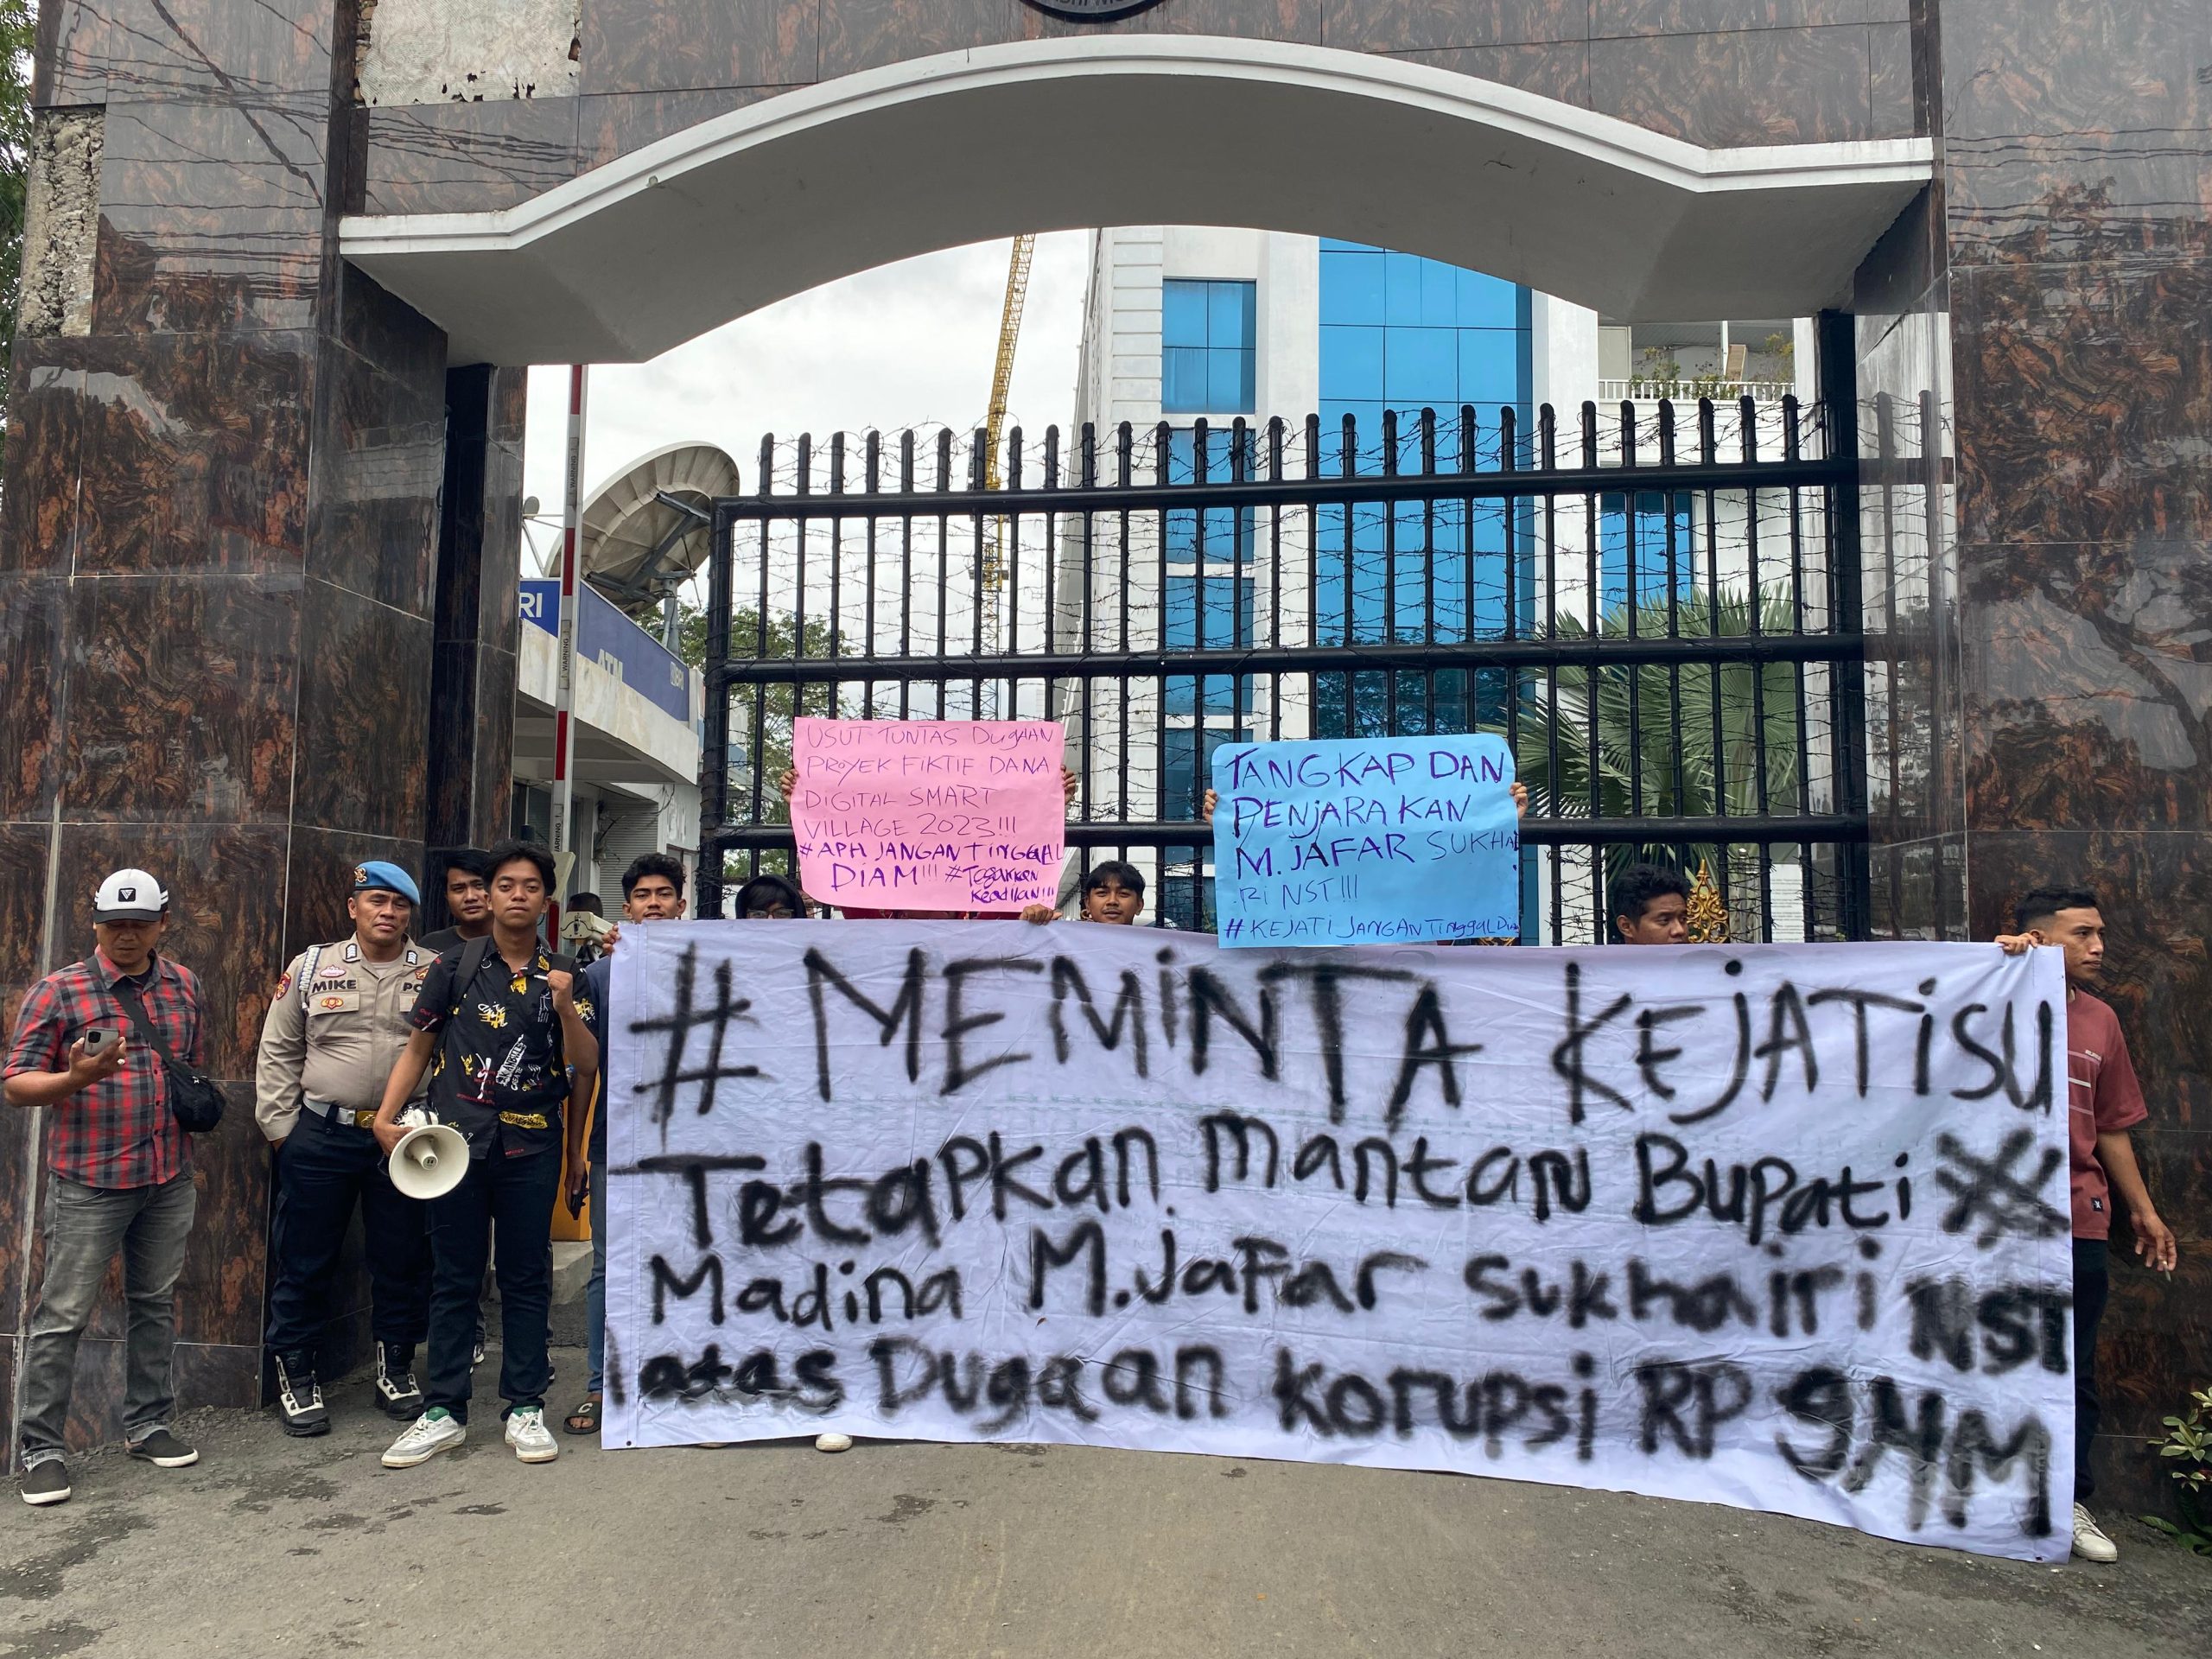 RI
ATM
BRI
WARNING
USUT TUNTAS DUGAAN
PROYEK FIKTIF DANA
DIGITAL SMART
VILLAGE 2023!!!
#APH JANGAN TINGGAL
DIAM!!! #Tegakken
Keadilan!!!
TANGKAP DAN
PENJARAKAN
M. JAFAR SUKHAI
RI NST!!!
#KEJATI JANGAN TinggGAL Diam
MIKE
PO
#MEMINTA KEJATISU
Tetapkan mantan Bupati
Madina M. Jafar Sukhairi NST
atas Dugaan korupsi RP 9,4M